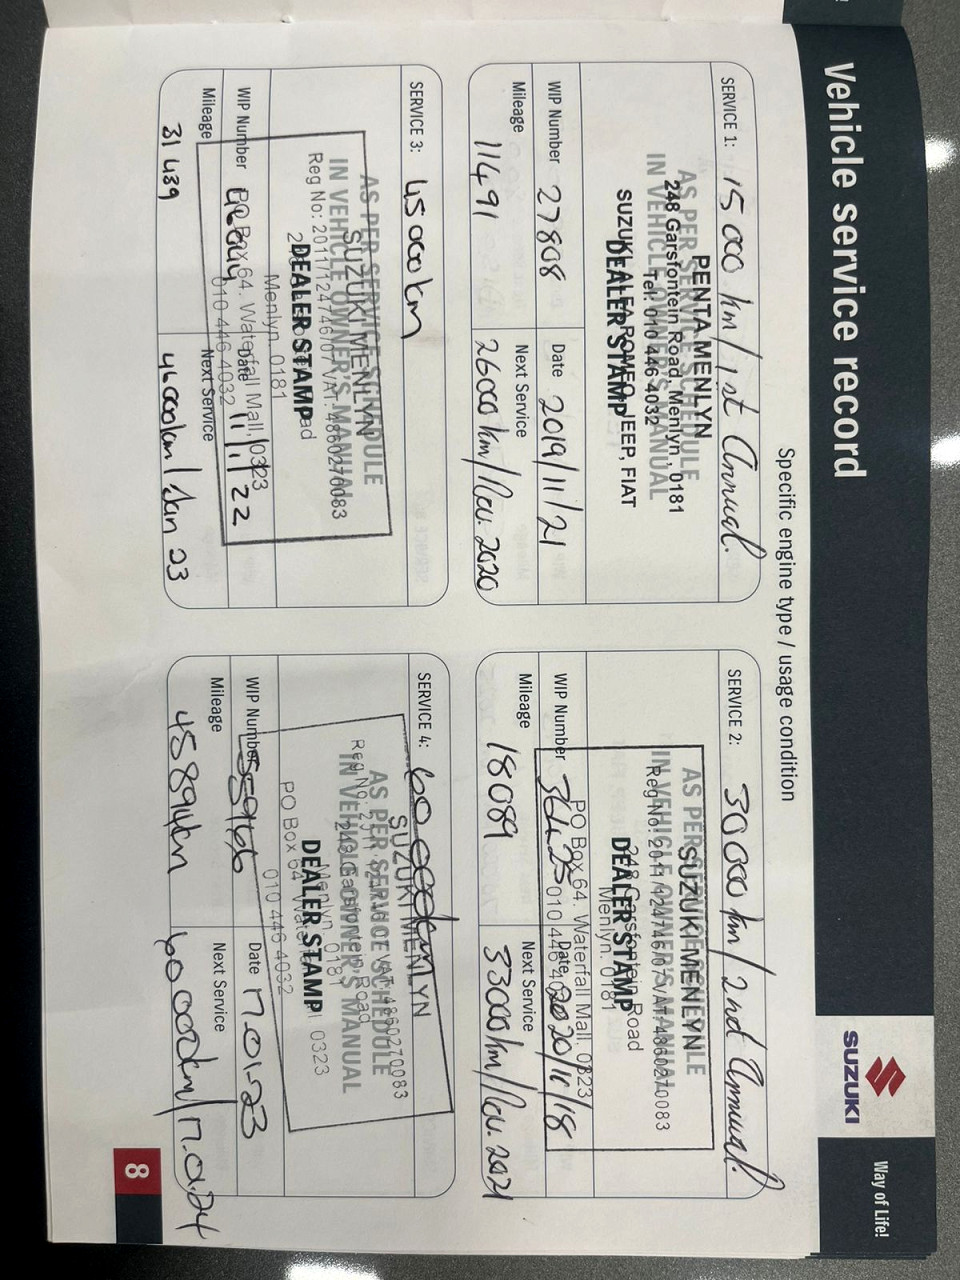 Vehicle service record
SUZUKI
Way of Life!
Specific engine type / usage condition
SERVICE 1: 15 000 km / 1st Annual.
AS PER SERVICE SCHEDULE
IN VEHICLE OWNER'S MANUAL
DEALER STAMP
PENTA MENLYN
248 Garsfontein Road, Menlyn, 0181
Tel: 010 446 4032
SUZUKI, ALFA ROMEO, JEEP, FIAT
WIP Number 27808
Date 2019/11/21
Mileage 11491
Next Service 26000 km / Nov. 2020
SERVICE 2: 30 000 km / 2nd Annual.
AS PER SERVICE SCHEDULE
IN VEHICLE OWNER'S MANUAL
DEALER STAMP
SUZUKI MENLYN
Reg No: 2011/124746/07 VAT: 4860270083
248 Garsfontein Road
Menlyn. 0181
PO Box 64. Waterfall Mall. 0323
010 446 4032
WIP Number
Date 2020/11/18
Mileage 18089
Next Service 33000 km / Nov. 2021
SERVICE 3: 45 000 km
AS PER SERVICE SCHEDULE
IN VEHICLE OWNER'S MANUAL
DEALER STAMP
SUZUKI MENLYN
Reg No: 2011/124746/07 VAT: 4860270083
Menlyn. 0181
PO Box 64. Waterfall Mall. 0323
010 446 4032
WIP Number
Date 11/1/22
Mileage 31 439
Next Service 46000km / Jan 23
SERVICE 4: 60 000km
AS PER SERVICE SCHEDULE
IN VEHICLE OWNER'S MANUAL
DEALER STAMP
SUZUKI MENLYN
Reg No: 2011/124746/07 VAT: 4860270083
248 Garsfontein Road
Menlyn. 0181
PO Box 64 0323
010 446 4032
WIP Number 55966
Date 17.01.23
Mileage 45894km
Next Service 60 000km / 17.01.24
8